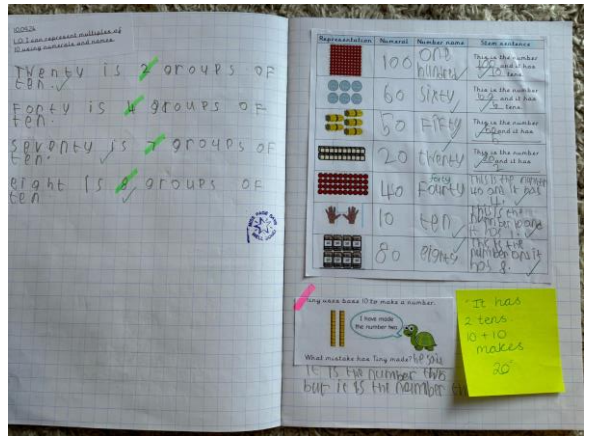 L.O. I can represent multiples of
10 using numerals and names.
Twenty is 2 groups of
ten.
Forty is 4 groups of
ten.
Seventy is 7 groups of
ten.
eight is 8 groups of
ten
Representation Numeral Number name Stem sentence
100 one
hundred
This is the number
100 and it has
10 tens.
60 sixty
This is the number
60 and it has
tens.
50 fifty
This is the number
and it has
20 twenty
This is the number
20
40 fourty
forty
This is the number
40 and it has
4.
10 ten
This is the
number 10 and
it has
80 eighty
number and it
has 8.
Tiny uses base 10 to make a number.
I have made
the number two
What mistake has Tiny made? he said
it is the number
but it is the number
It has
2 tens.
10 + 10
makes
20